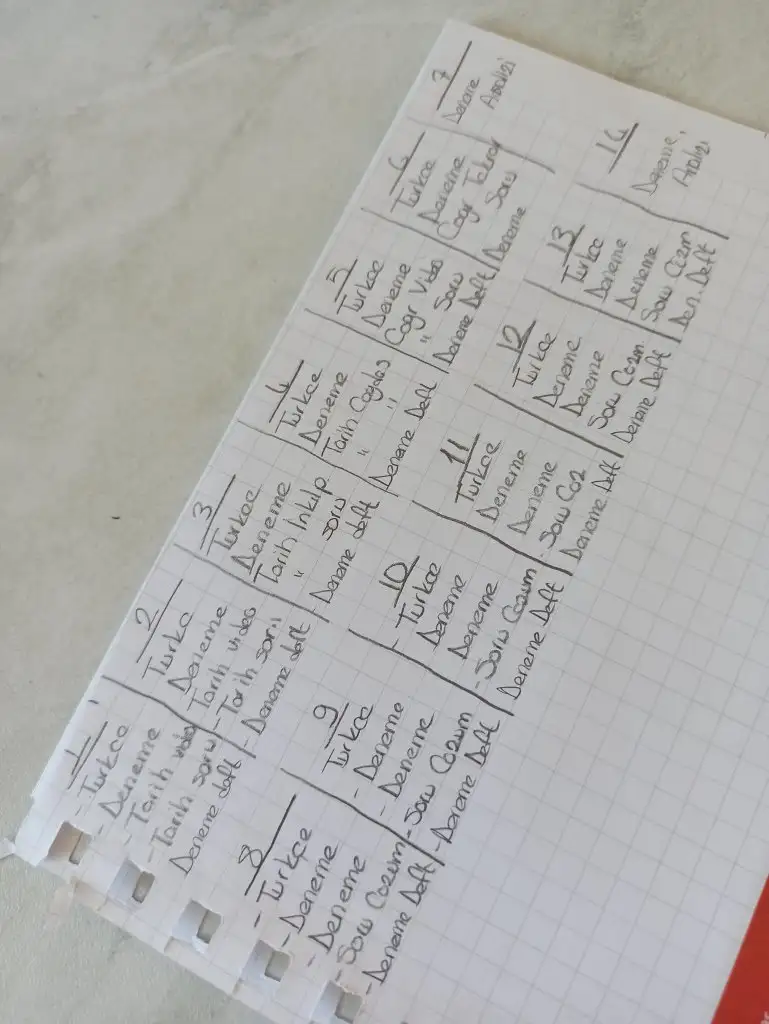 1
- Türkce
- Deneme
- Tarih video
- Tarih soru
Deneme deft
2
Türkc
Deneme
Tarih video
- Tarih soru
- Deneme deft
3
Türkce
Deneme
Tarih Inkilp
" soru
- Deneme deft
4
Türkce
Deneme
Tarih Cagdas
" "
Deneme Deft
5
Türkce
Deneme
Cogr Video
" Soru
Deneme Deft
6
Türkce
Deneme
Cogr Tekrar
Soru
Deneme
7
Deneme
Analizi
8
- Türkçe
- Deneme
- Deneme
- Soru Cozum
- Deneme Deft
9
Türkce
- Deneme
- Deneme
- Soru Cozum
- Deneme Deft
10
- Türkce
Deneme
Deneme
- Soru Cozum
Deneme Deft
11
Türkce
Deneme
Deneme
- Soru Coz
Deneme Deft
12
Türkce
Deneme
Deneme
Soru Cozm
Deneme Deft
13
Türkce
Deneme
Deneme
Soru Cozm
Den. Deft
14
Deneme,
Analizi